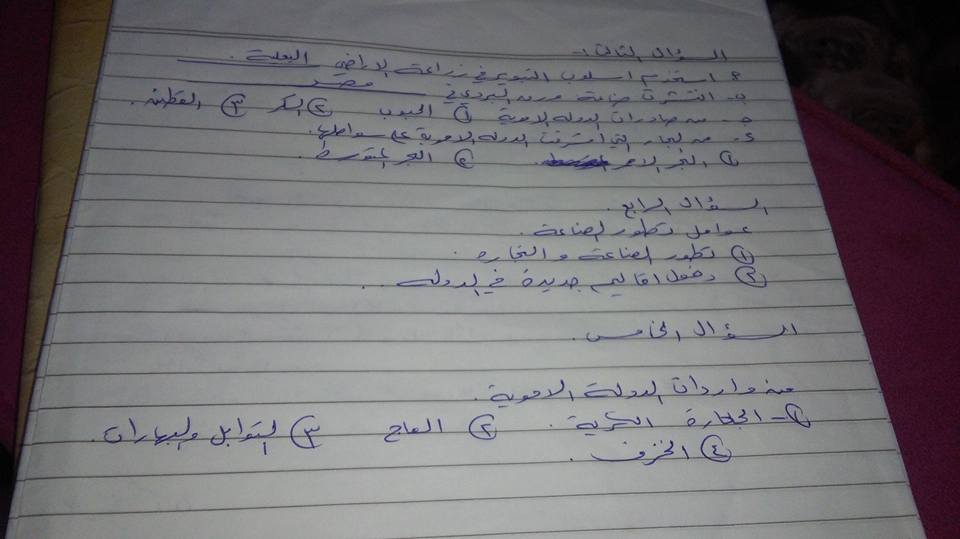 السؤال الثالث :-
أ- استخدم اسلوب التبوير في زراعة الاراضي البعلية .
ب- انتشرت صناعة ورق البردي في مصر
ج- من صادرات الدولة الاموية ① الحبوب ② السكر ③ القطن .
د- من البحار التي أشرفت الدولة الاموية على سواحلها .
① البحر الاحمر . ② البحر المتوسط .
السؤال الرابع .
عوامل تطور الصناعة .
① تطور الصناعة و التجاره .
② دخول اقاليم جديدة في الدولة ..
السؤال الخامس .
من واردات الدولة الاموية .
①- الحجارة الكريمة . ② العاج ③ التوابل والبهارات .
④ الخزف .